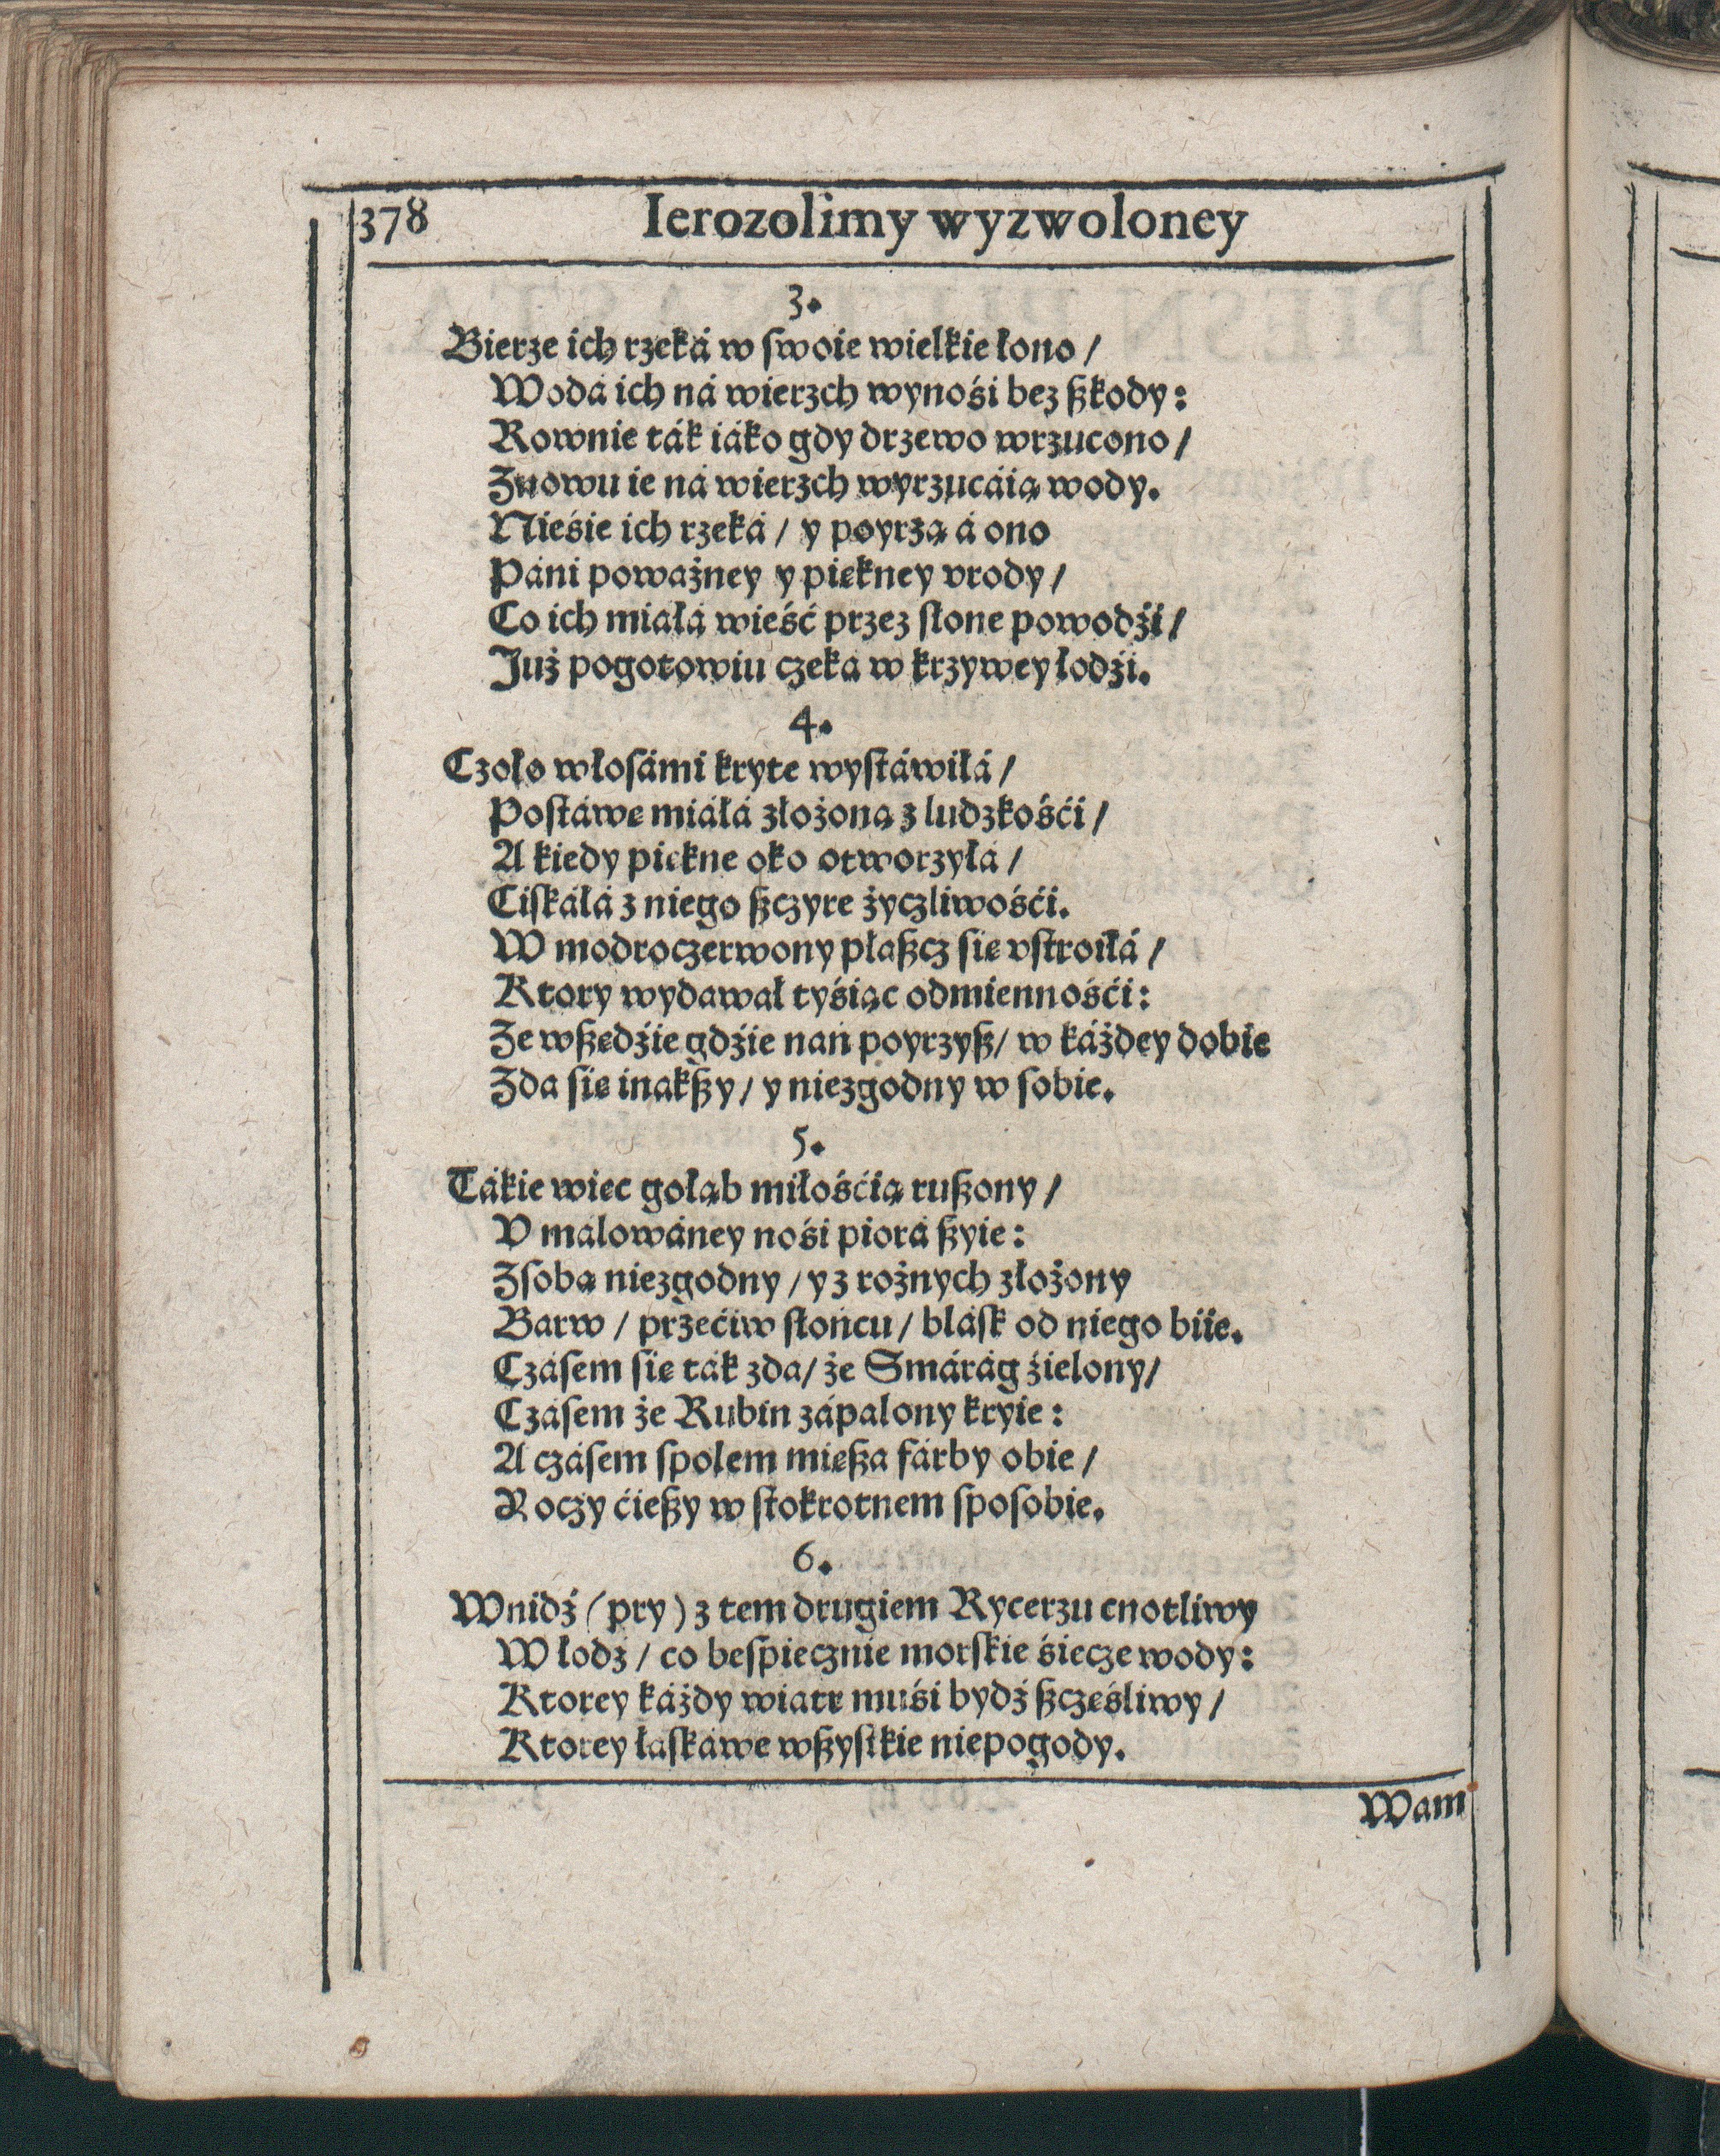 378 Ierozolimy wyzwoloney
3.
Bierze ich rzeká w ſwoie wielkie łono /
Wodá ich ná wierzch wynośi bez ßkody:
Rownie ták iáko gdy drzewo wrzucono /
Znowu ie ná wierzch wyrzucáią wody.
Nieśie ich rzeká / y poyrzą á ono
Páni poważney y piękney vrody /
Co ich miáłá wieść przez słone powodźi /
Już pogotowiu czeka w krzywey łodźi.
4.
Czoło włoſámi kryte wyſtáwiłá /
Poſtáwę miáłá złożoną z ludzkośći /
A kiedy piękne oko otworzyłá /
Ciſkáłá z niego ßczyre życzliwośći.
W modroczerwony płaßcz ſię vſtroiłá /
Ktory wydawał tyśiąc odmiennośći:
Że wßędźie gdźie nań poyrzyß / w káżdey dobie
Zda ſię inakßy / y niezgodny w ſobie.
5.
Tákie więc gołąb miłośćią rußony /
V málowáney nośi piorá ßyie:
Zſobą niezgodny / y z rożnych złożony
Barw / przećiw słońcu / bláſk od niego biie.
Czáſem ſię ták zda / że Smárág źielony /
Czáſem że Rubin zápalony kryie:
A czáſem ſpolem mięßa fárby obie /
Y oczy ćießy w ſtokrotnem ſpoſobie.
6.
Wnidź (pry) z tem drugiem Rycerzu cnotliwy
W łodź / co beſpiecznie morſkie śiecze wody:
Ktorey káżdy wiatr muśi bydź ßczęśliwy /
Ktorey łáſkáwe wßyſtkie niepogody.
Wam